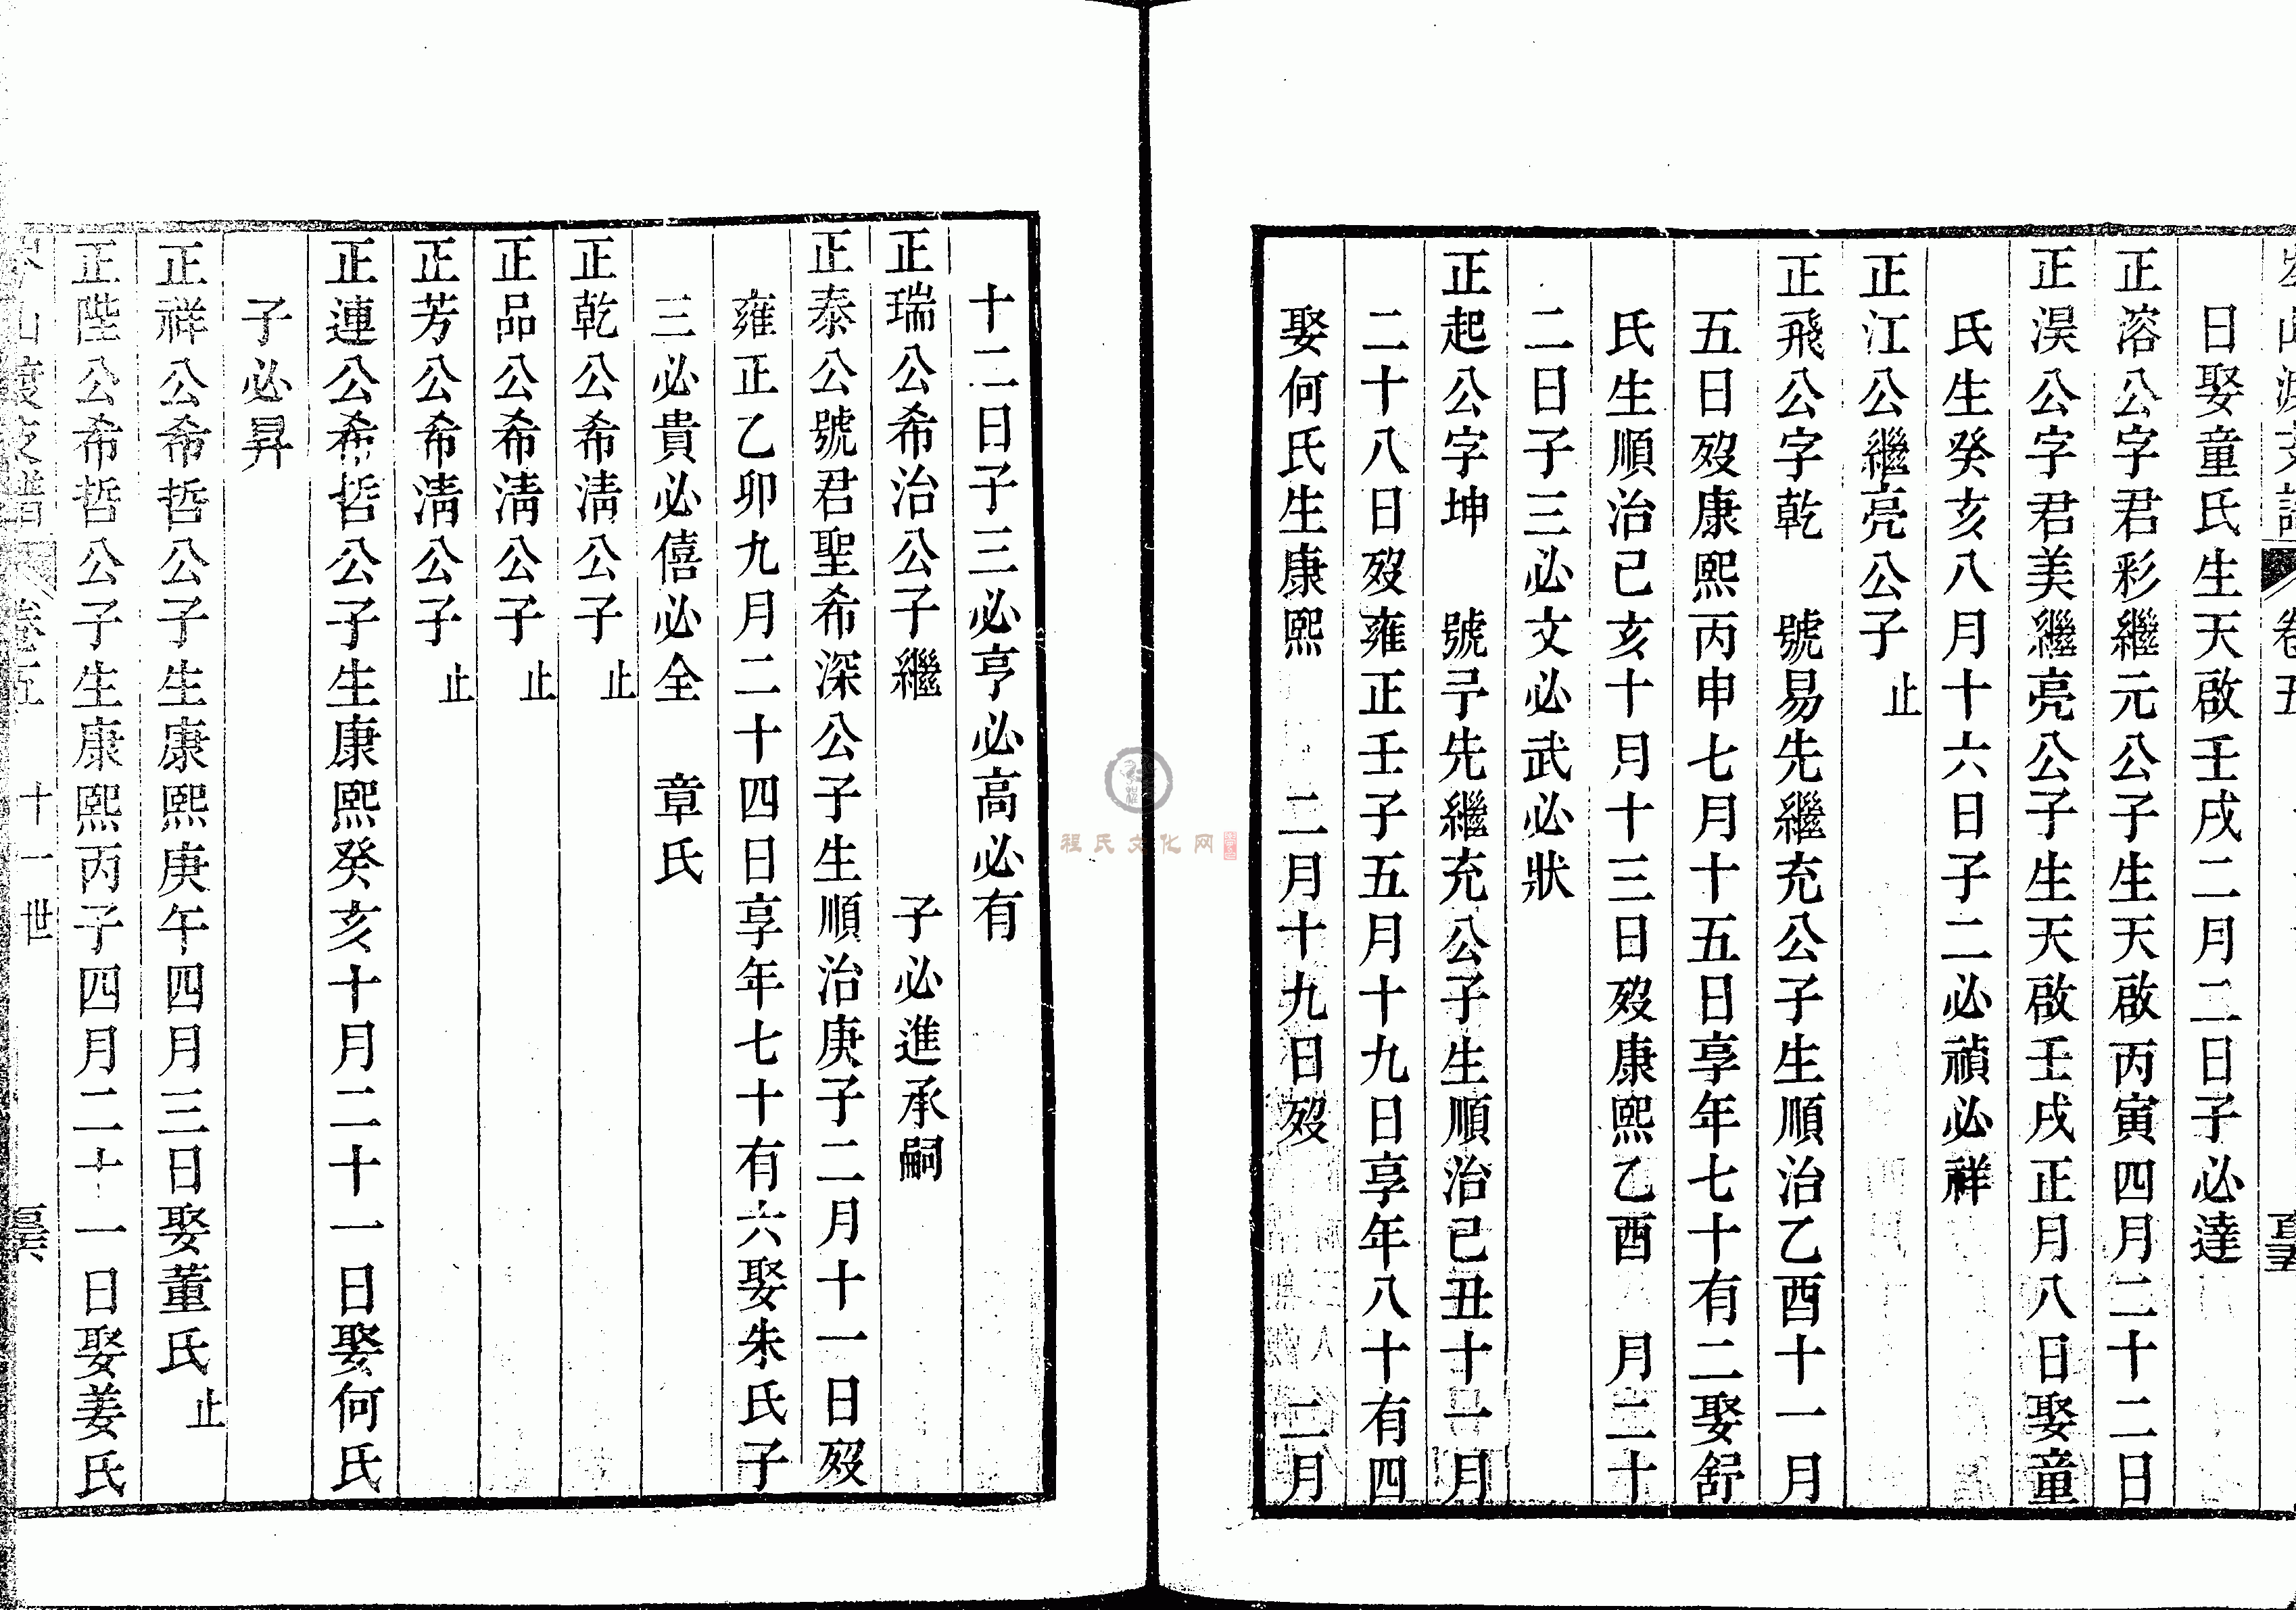 卷五
日娶童氏生天啟壬戌二月二日子必達
正溶公字君彩繼元公子生天啟丙寅四月二十二日
正淏公字君美繼亮公子生天啟壬戌正月八日娶童
氏生癸亥八月十六日子二必禎必祥
正江公繼亮公子止
正飛公字乾 號易先繼充公子生順治乙酉十一月
五日歿康熙丙申七月十五日享年七十有二娶舒
氏生順治己亥十月十三日歿康熙乙酉 月二十
二日子三必文必武必狀
正起公字坤 號予先繼充公子生順治己丑十一月
二十八日歿雍正壬子五月十九日享年八十有四
娶何氏生康熙 二月十九日歿 二月
十二日子三必亨必高必有
正瑞公希治公子繼 子必進承嗣
正泰公號君聖希深公子生順治庚子二月十一日歿
雍正乙卯九月二十四日享年七十有六娶朱氏子
三必貴必僖必全 章氏
正乾公希淸公子止
正品公希淸公子止
正芳公希淸公子止
正連公希哲公子生康熙癸亥十月二十一日娶何氏
子必昇
正祥公希哲公子生康熙庚午四月三日娶董氏止
正陛公希哲公子生康熙丙子四月二十一日娶姜氏
卷五 十一世
程氏文化网